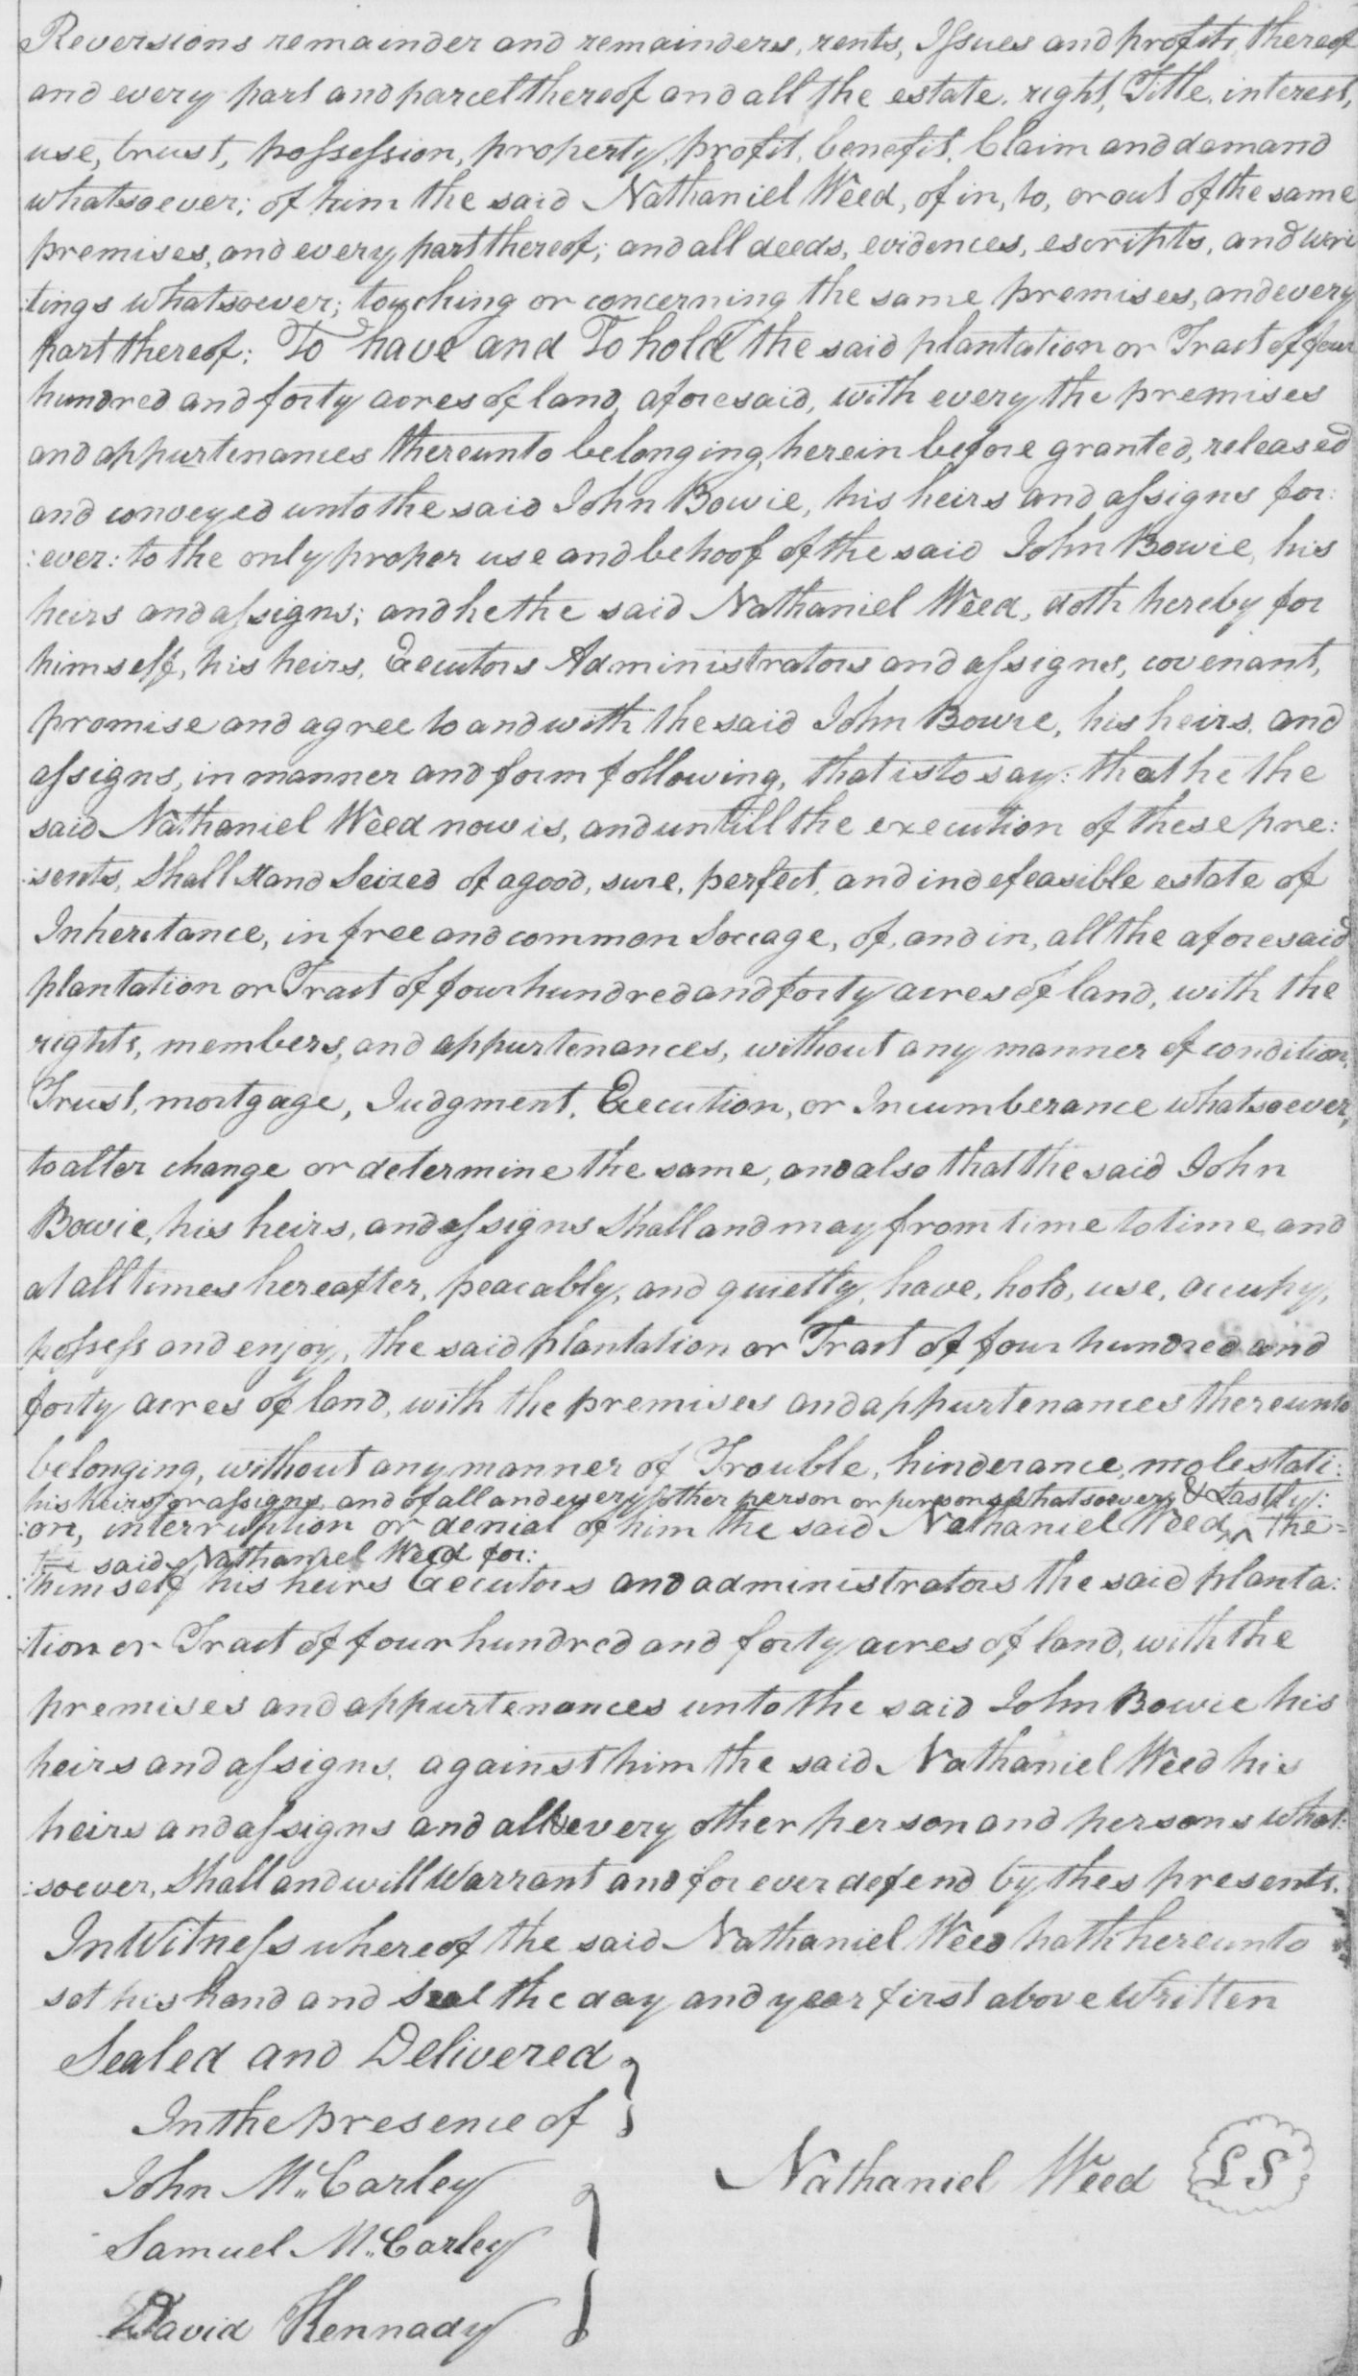 Reversions remainder and remainders, rents, Issues and profits thereof
and every part and parcel thereof and all the estate, right, Title, interest,
use, trust, possession, property, profit, benefit, Claim and demand
whatsoever; of him the said Nathaniel Weed, of in, to, or out of the same
premises, and every part thereof; and all deeds, evidences, escripts, and wri
:tings whatsoever; touching or concerning the same premises, and every
part thereof: To have and To hold the said plantation or Tract of four
hundred and forty acres of land, aforesaid, with every the premises
and appurtenances thereunto belonging, herein before granted, released
and conveyed unto the said John Bowie, his heirs and assigns for:
:ever: to the only proper use and behoof of the said John Bowie, his
heirs and assigns; and he the said Nathaniel Weed, doth hereby for
himself, his heirs, Executors Administrators and assigns, covenant,
promise and agree to and with the said John Bowie, his heirs, and
assigns, in manner and form following, that is to say: that he the
said Nathaniel Weed now is, and untill the execution of these pre:
:sents, Shall stand Seized of a good, sure, perfect, and indefeasible estate of
Inheritance, in free and common Soccage, of, and in, all the aforesaid
plantation or Tract of four hundred and forty acres of land, with the
rights, members, and appurtenances, without any manner of condition,
Trust, mortgage, Judgment, Execution, or Incumberance whatsoever,
to alter change or determine the same, and also that the said John
Bowie, his heirs, and assigns Shall and may from time to time and
at all times hereafter, peacably, and quietly, have, hold, use, occupy,
possess and enjoy, the said plantation or Tract of four hundred and
forty acres of land, with the premises and appurtenances thereunto
belonging, without any manner of Trouble, hinderance, molestati:
his heirs or assigns, and of all and every other person or persons whatsoever, & Lastly:
:on, interruption or denial of him the said Nathaniel Weed, ^ the=
the said Nathaniel Weed for:
:himself his heirs Executors and administrators the said planta:
:tion or Tract of four hundred and forty acres of land, with the
premises and appurtenances unto the said John Bowie his
heirs and assigns, against him the said Nathaniel Weed his
heirs and assigns and all & every other person and persons what:
:soever, Shall and will Warrant and for ever defend by thes presents.
In Witness whereof the said Nathaniel Weed hath hereunto
set his hand and seal the day and year first above Written
Sealed and Delivered
In the presence of
John Mc. Carley
Nathaniel Weed LS
Samuel Mc. Carley
David Kennady